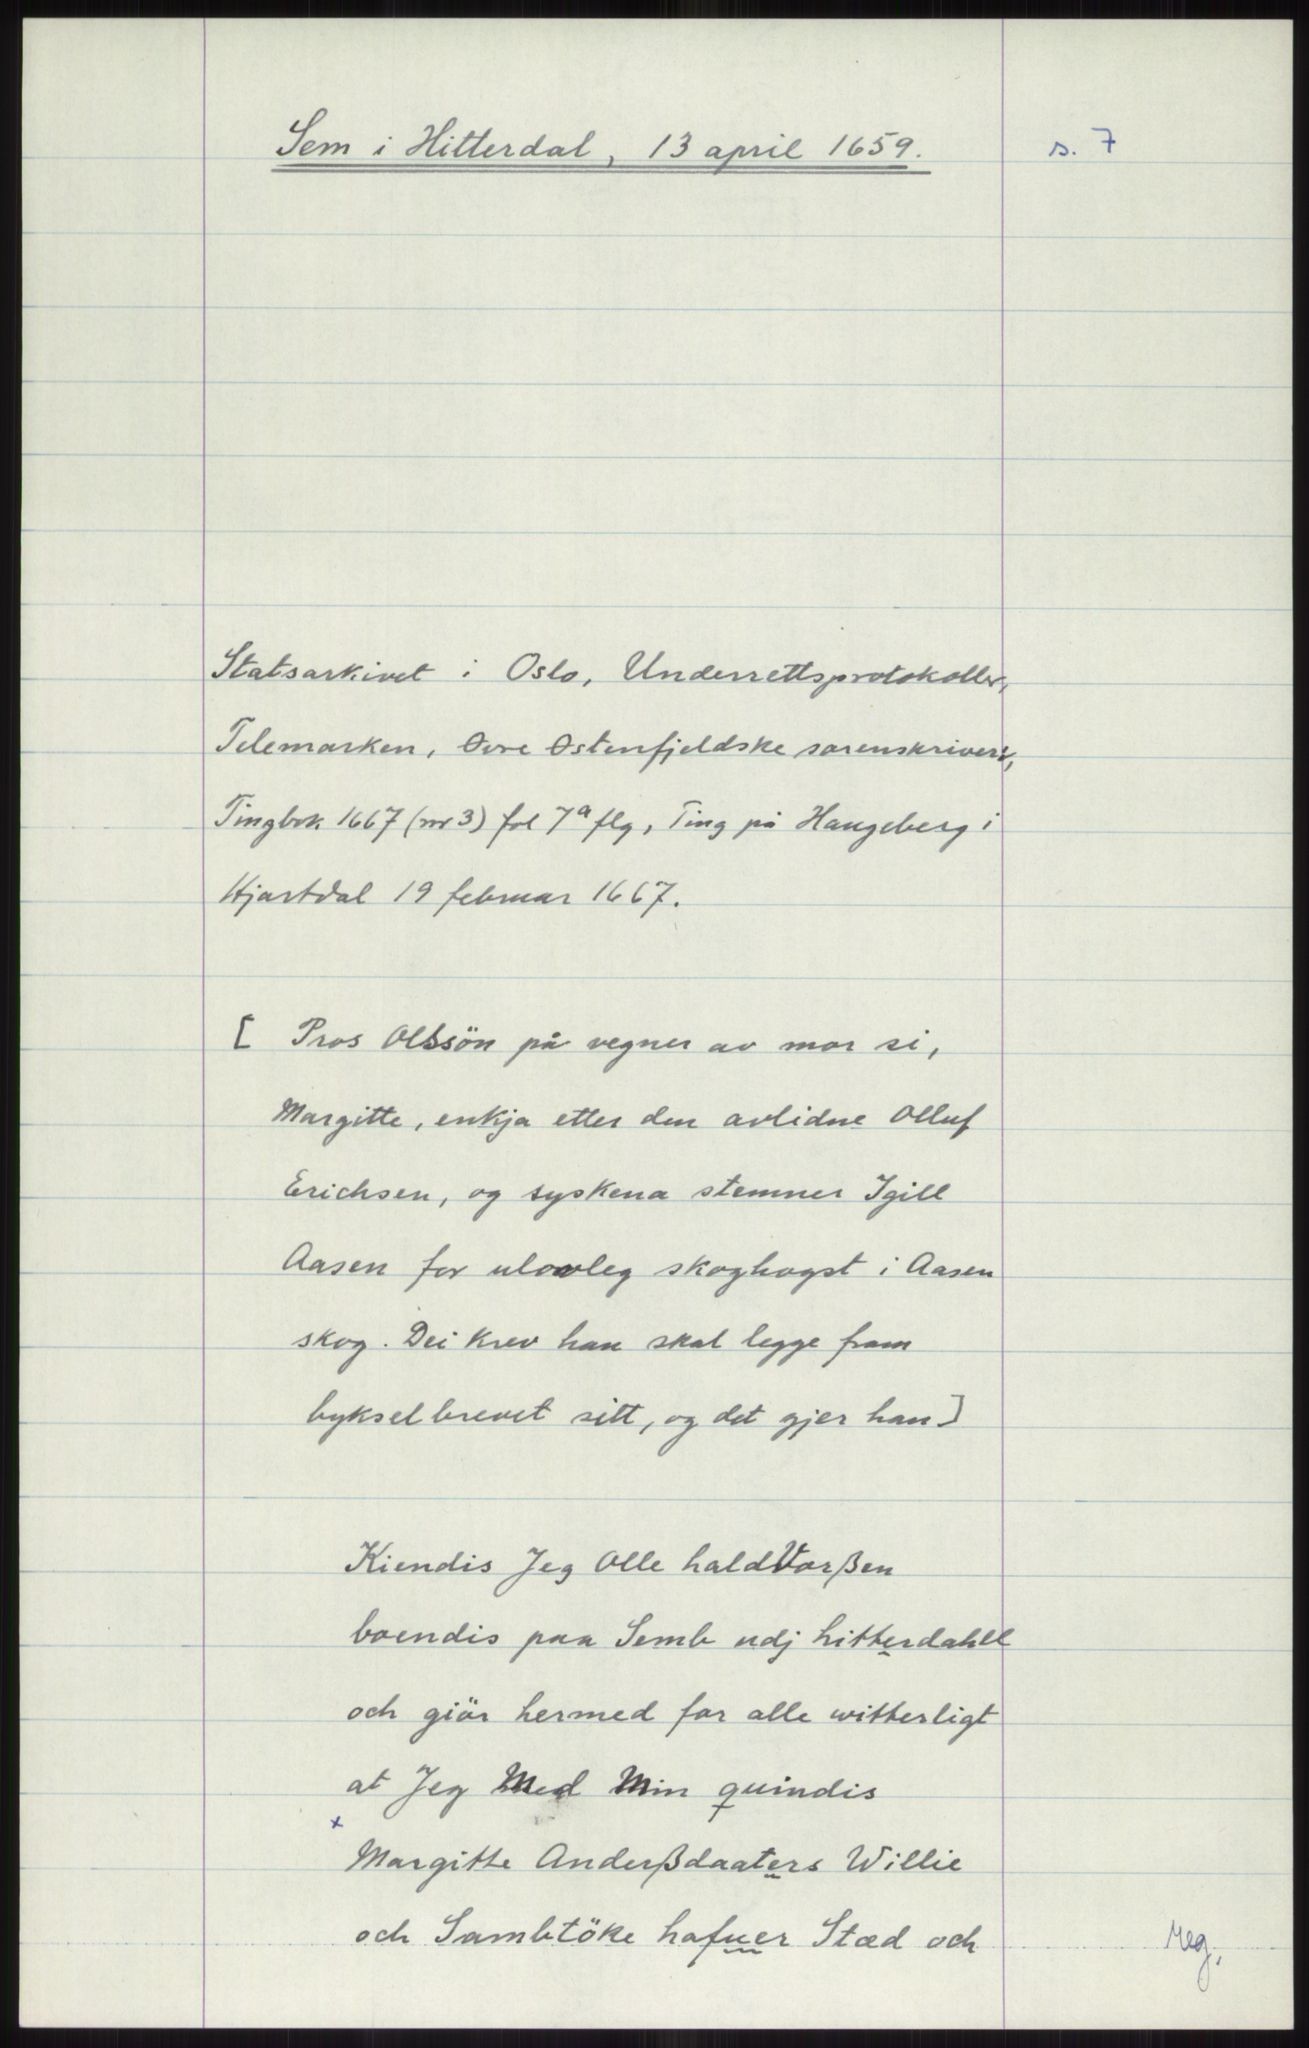 Sem i Hitterdal, 13 april 1659.
s. 7
Statsarkivet i Oslo, Underrettsprotokoller,
Telemarken, Øvre Østenfjeldske sorenskriveri,
Tingbok 1667 (nr 3) fol 7a flg, Ting på Haugeberg i
Hjartdal 19 februar 1667.
[ Pros Olssön på vegner av mor si,
Margitte, enkja etter den avlidne Olluf
Erichsen, og syskena stemner Igill
Aasen for ulovleg skoghogst i Aasen
skog. Dei krev han skal legge fram
bykselbrevet sitt, og det gjer han]
Kiendis Jeg Olle haldVorßen
boendis paa Semb udj hitterdahll
och giör hermed for alle witterligt
at Jeg Med Min quindis
x
Margitte Anderßdaaters Willie
och Sambtöke hafuer Stæd och
Reg.